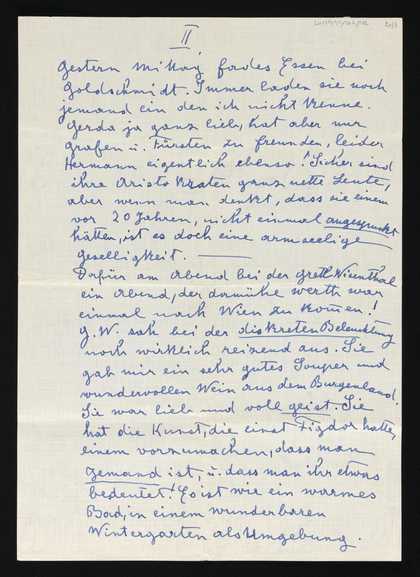 II
Gestern Mittag fades Essen bei
Goldschmidt. Immer laden sie noch
jemand ein den ich nicht kenne.
Gerda ja ganz lieb, hat aber nur
Grafen u. Fürsten zu Freunden, leider
Hermann eigentlich ebenso! Sicher sind
ihre Aristokraten ganz nette Leute,
aber wenn man denkt, dass sie einem
vor 20 Jahren, nicht einmal angespuckt
hätten, ist es doch eine armseelige
Geselligkeit. ———
Dafür am Abend bei der Gretl Wienthal
ein Abend, der darmühe werth war
einmal nach Wien zu komen!
G. W. sah bei der diskreten Beleuchtung
noch wirklich reizend aus. Sie
gab mir ein sehr gutes Souper und
wundervollen Wein aus dem Burgenland.
Sie war lieb und voll geist. Sie
hat die Kunst, die einst Figdor hatte,
einem vorzumachen, dass man
jemand ist, u. dass man ihr etwas
bedeutet! Es ist wie ein warmes
Bad, in einem wunderbaren
Wintergarten als Umgebung.